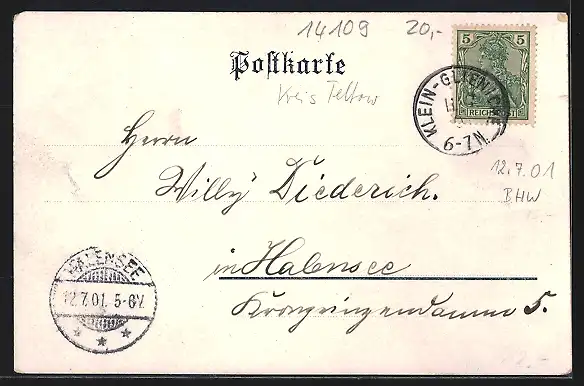 14109 20,-
Postkarte
Kreis Teltow
5 5
REICHSPOST
KLEIN-GLIENICKE
6-7N.
12.7.01
BHW
Herrn
Willy Diederich.
in Halensee
Kronprinzendamm 5.
HALENSEE
12.7.01. 5-6V.